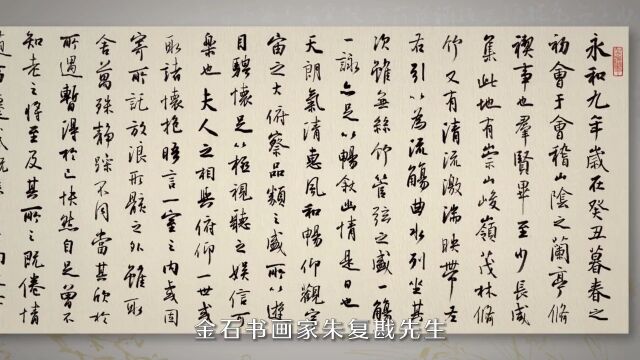 永和九年歲在癸丑暮春之
初會于會稽山陰之蘭亭脩
禊事也羣賢畢至少長咸
集此地有崇山峻嶺茂林脩
竹又有清流激湍映帶左
右引以為流觴曲水列坐其
次雖無絲竹管弦之盛一觴
一詠亦足以暢敘幽情是日也
天朗氣清惠風和暢仰觀宇
宙之大俯察品類之盛所以遊
目騁懷足以極視聽之娛信可
樂也夫人之相與俯仰一世或
取諸懷抱晤言一室之內或因
寄所託放浪形骸之外雖取
舍萬殊靜躁不同當其欣於
所遇暫得於己快然自足曾不
知老之將至及其所之既倦情
金石书画家朱复戡先生